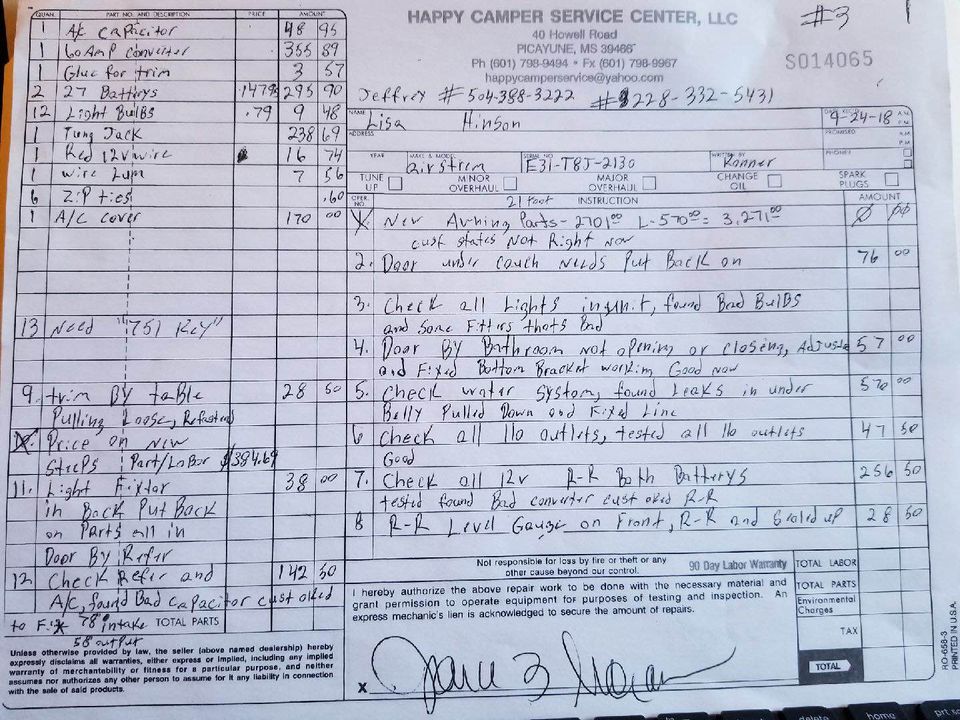 HAPPY CAMPER SERVICE CENTER, LLC
40 Howell Road
PICAYUNE, MS 39466
Ph (601) 798-9494 • Fx (601) 798-9967
happycamperservice@yahoo.com
#3
S014065
Jeffrey # 504-388-3222 # 228-332-5431
QUAN. PART NO. AND DESCRIPTION PRICE AMOUNT
1 A/C capacitor 48 95
1 60 Amp converter 355 89
1 Glue for trim 3 57
2 27 Batterys 147 95 295 90
12 Light Bulbs .79 9 48
1 Tung Jack 238 69
1 Red 12v wire 16 74
1 wire Lum 7 56
6 Zip ties .60
1 A/C cover 170 00
13 Need "751 Key"
9. trim By table 28 50
Pulling Loose, Refastend
10. Price on New
Steeps Part/Labor $384.69
11. Light Fixtor 38 00
in Back Put Back
on Parts all in
Door By Refer
12 Check Refer and 142 50
A/C, found Bad capacitor cust oked
to Fix 78° intake TOTAL PARTS
58 output
Unless otherwise provided by law, the seller (above named dealership) hereby
expressly disclaims all warranties, either express or implied, including any implied
warranty of merchantability or fitness for a particular purpose, and neither
assumes nor authorizes any other person to assume for it any liability in connection
with the sale of said products.
NAME Lisa Hinson DATE REC'D 9-24-18 A.M. P.M.
ADDRESS PROMISED A.M. P.M.
PHONE
YEAR MAKE & MODEL airstrem SERIAL NO. E31-T8J-2130 WRITTEN BY Konner
TUNE UP MINOR OVERHAUL MAJOR OVERHAUL CHANGE OIL SPARK PLUGS
OPER. NO. 21 foot INSTRUCTION AMOUNT
1. New Awning Parts - 2701.00 L-570.00 = 3,271.00 0 00
cust states Not Right now
2. Door under couch needs Put Back on 76 00
3. Check all Lights in unit, found Bad Bulbs
and Some Fitters thats Bad
4. Door By Bathroom not opening or closing, Adjusted 57 00
and Fixed Bottom Bracket working Good now
5. Check water system, found Leaks in under 570 00
Belly Pulled Down and Fixed Line
6 Check all 110 outlets, tested all 110 outlets 47 50
Good
7. Check all 12v R-R Both Batterys 256 50
tested found Bad converter cust oked R-R
8 R-R Level Gauge on Front, R-R and Sealed up 28 50
Not responsible for loss by fire or theft or any
other cause beyond our control.
90 Day Labor Warranty
I hereby authorize the above repair work to be done with the necessary material and
grant permission to operate equipment for purposes of testing and inspection. An
express mechanic's lien is acknowledged to secure the amount of repairs.
TOTAL LABOR
TOTAL PARTS
Environmental
Charges
TAX
TOTAL
X
RO-658-3
PRINTED IN U.S.A.
delete home prt sc